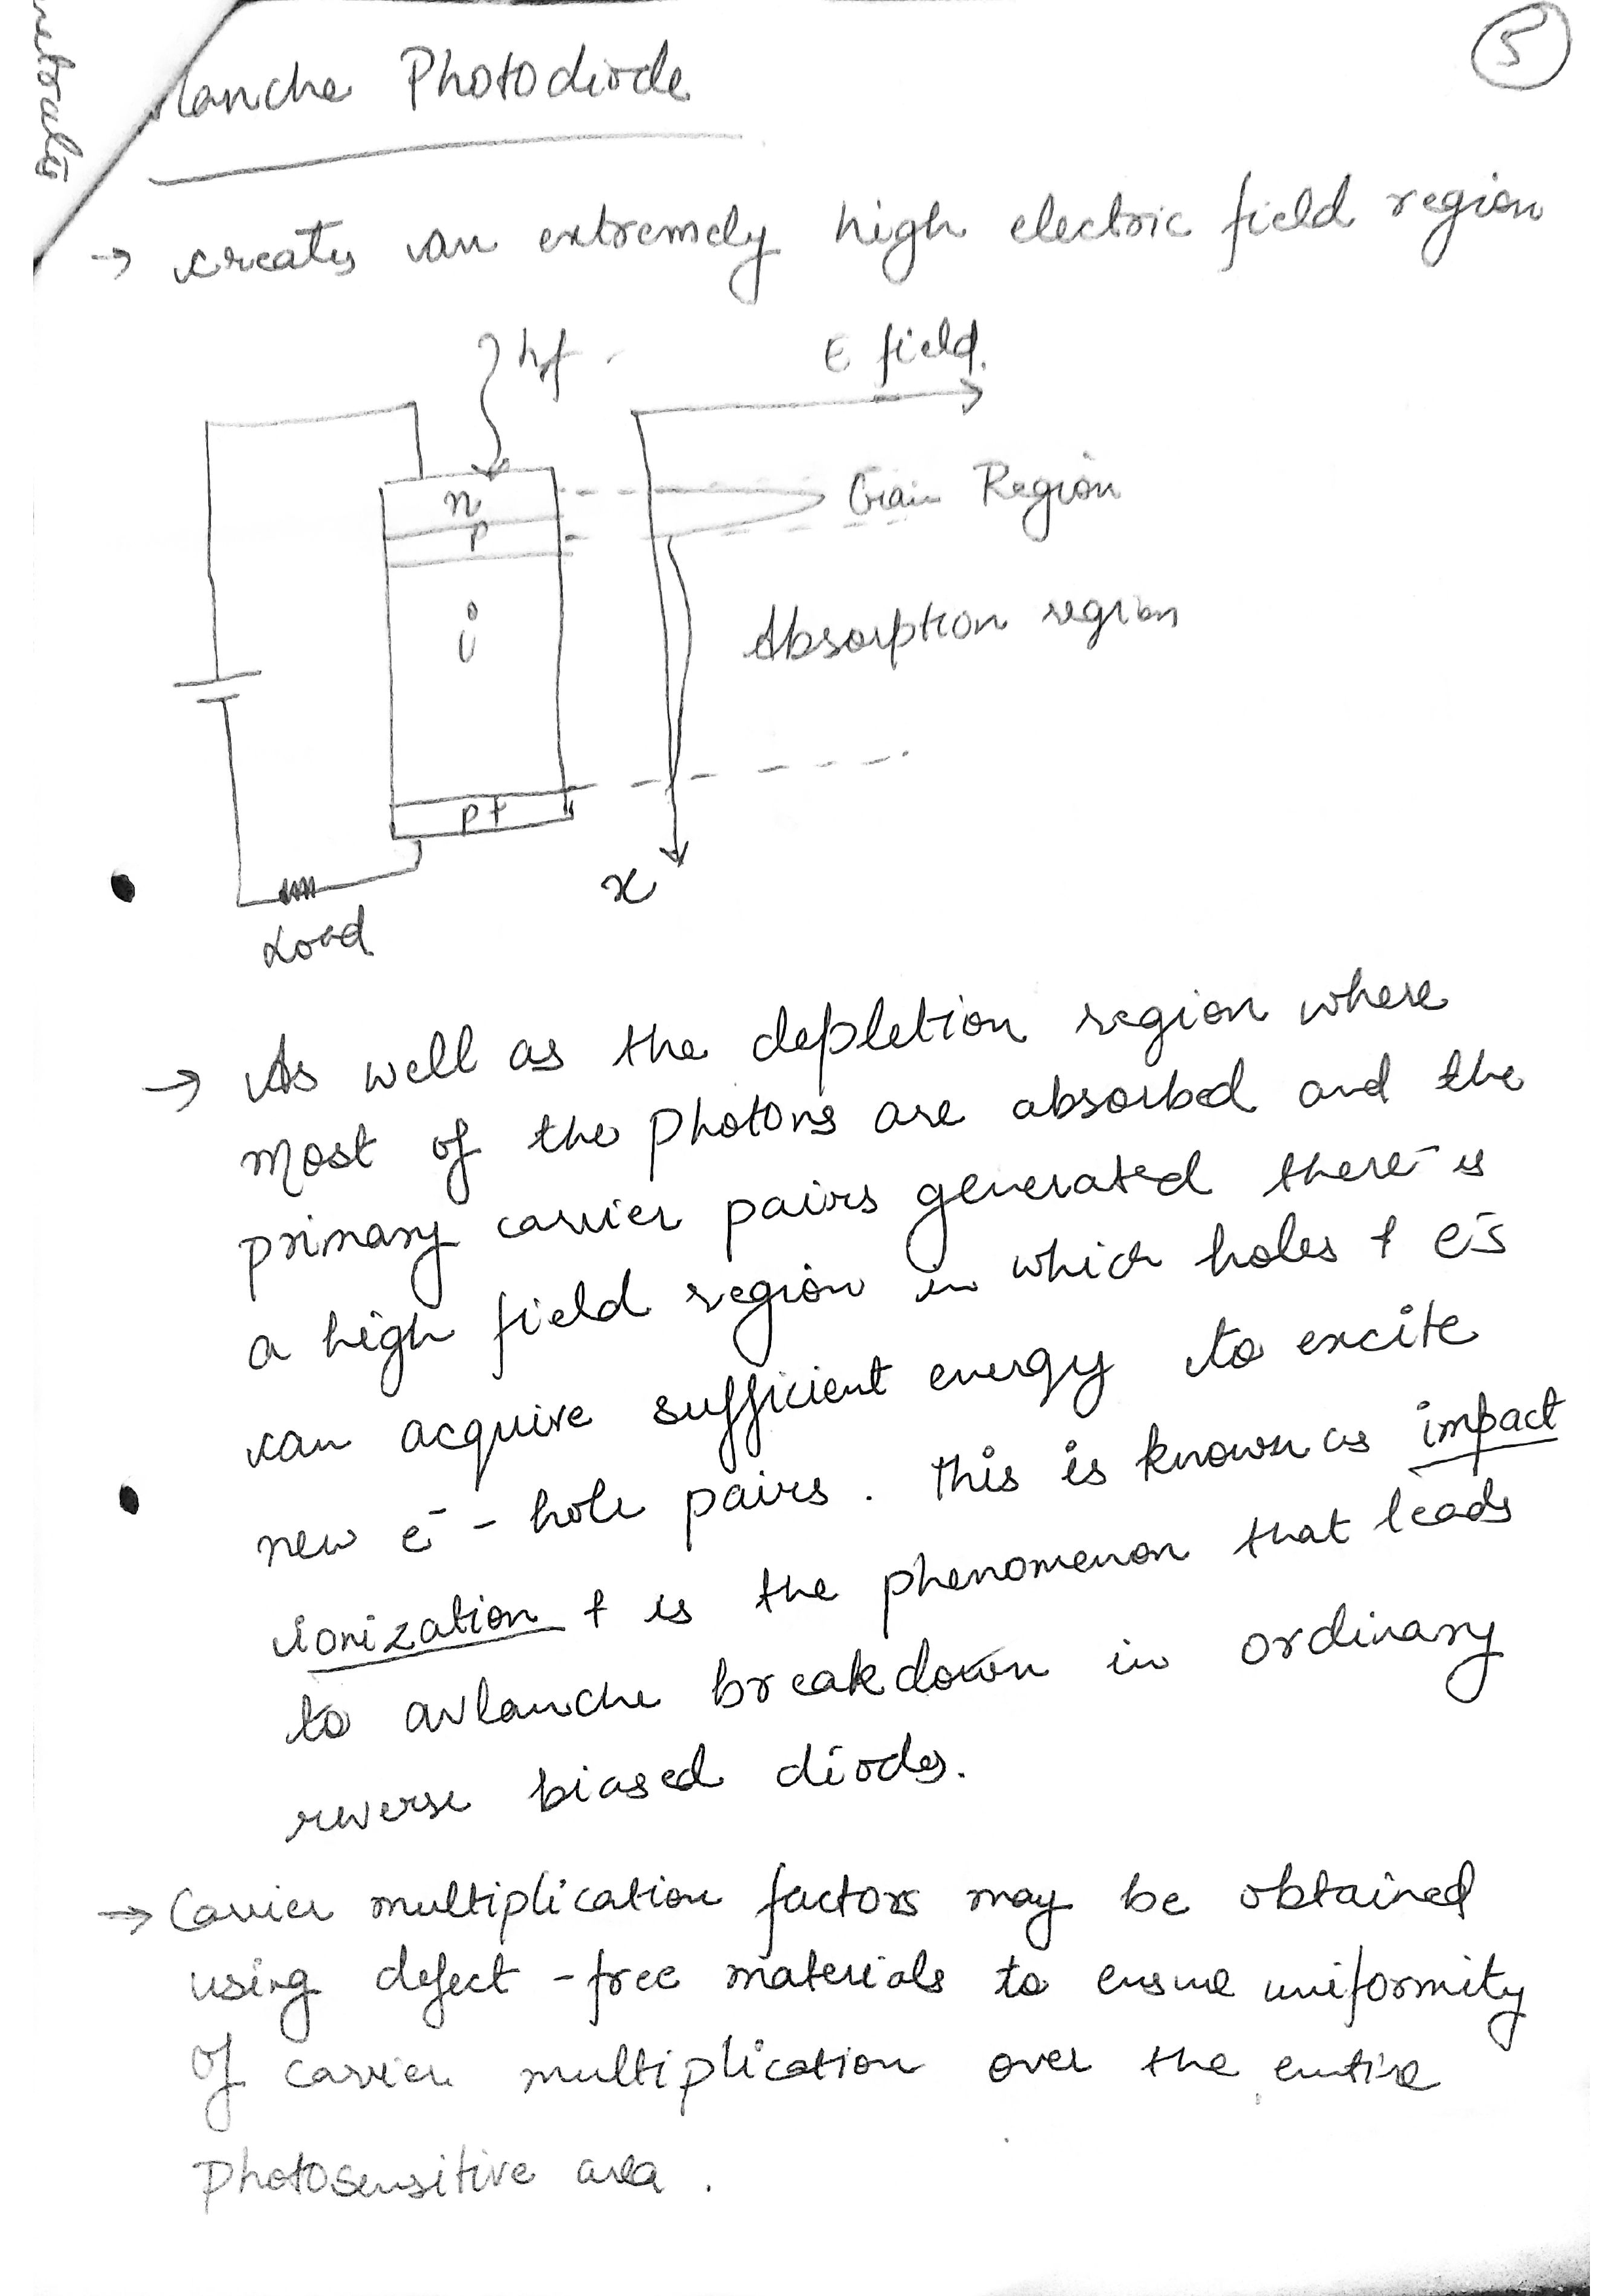 5
lanche Photodiode
→ creates an extremely high electric field region
hf
E field.
n
Gain Region
p
i
Absorption region
p+
x
Load
→ As well as the depletion region where
most of the photons are absorbed and the
primary carrier pairs generated there is
a high field region in which holes + e⁻s
can acquire sufficient energy to excite
new e⁻ - hole pairs. This is known as impact
ionization + is the phenomenon that leads
to avlanche breakdown in ordinary
reverse biased diodes.
→ Carrier multiplication factors may be obtained
using defect-free materials to ensure uniformity
of carrier multiplication over the entire
photosensitive area.